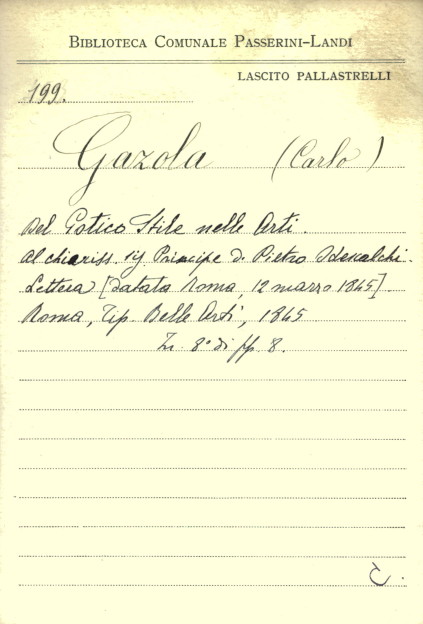 BIBLIOTECA COMUNALE PASSERINI-LANDI
LASCITO PALLASTRELLI
199.
Gazola (Carlo)
Del Gotico Stile nelle Arti.
Al chiariss. sig Principe D. Pietro Odescalchi.
Lettera [datata Roma, 12 marzo 1845].
Roma, Tip. Belle Arti, 1845
In 8° di pp. 8.